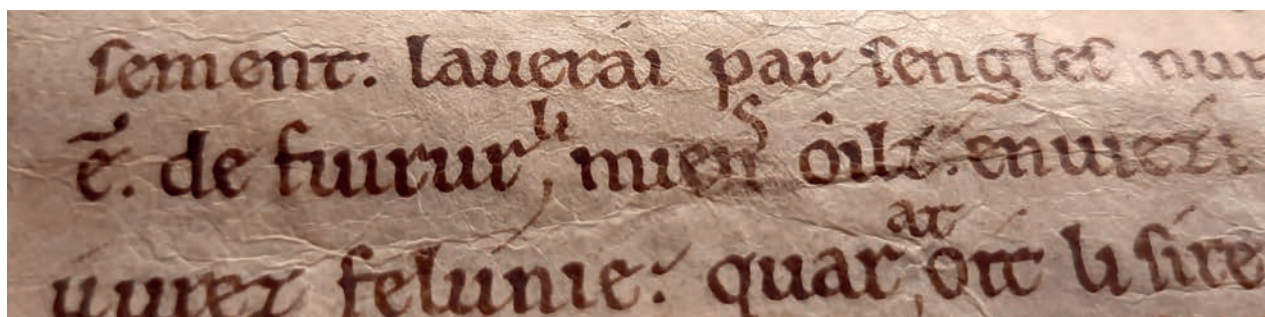 sement. lauerai par sengles nui
ē. de fuirur li miens oilz. enuiezi
uurez felunie. quar at oit li sire